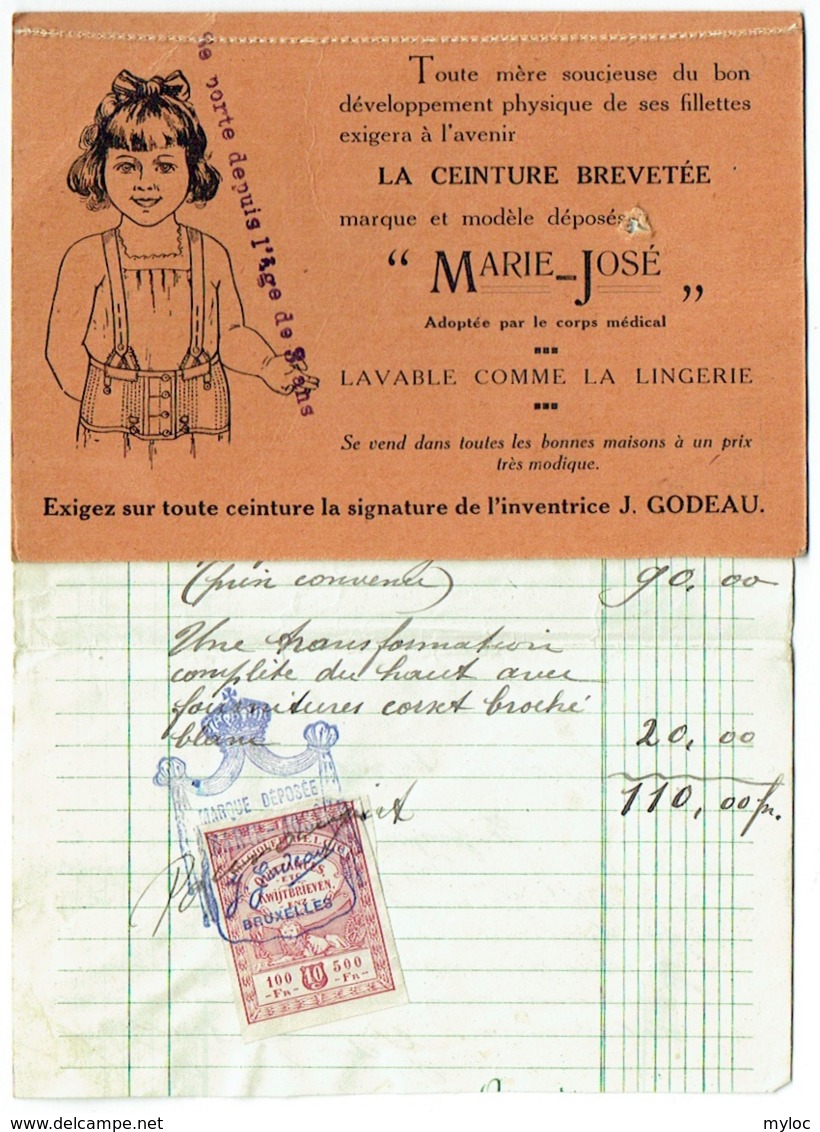 Toute mère soucieuse du bon
développement physique de ses fillettes
exigera à l'avenir
LA CEINTURE BREVETÉE
marque et modèle déposés
“ MARIE-JOSÉ „
Adoptée par le corps médical
LAVABLE COMME LA LINGERIE
Se vend dans toutes les bonnes maisons à un prix
très modique.
Exigez sur toute ceinture la signature de l'inventrice J. GODEAU.
Se porte depuis l'âge de 3 ans
(prix convenu) 90,00
Une transformation
complète du haut avec
fournitures corset broché
blanc 20,00
110,00 fr.
Pour acquit
MARQUE DÉPOSÉE
MARIE-JOSÉ
J. Godeau
BRUXELLES
QUITTANCES
ETC
KWIJTBRIEVEN,
ENZ
100 10 500
-FR- -FR-
myloc